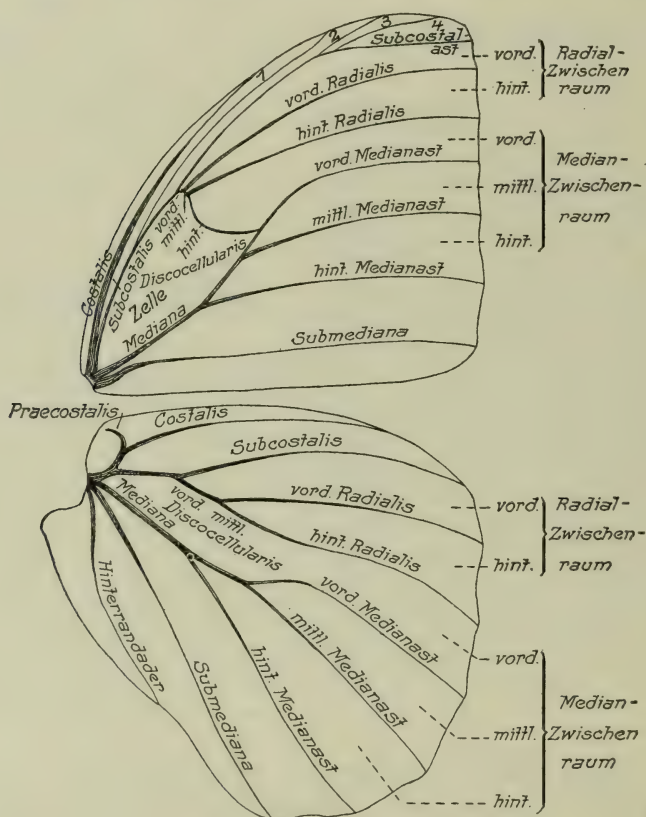 1 2 3 4.
Subcostal-
ast
vord. Radialis
hint. Radialis
vord. Medianast
mittl. Medianast
hint. Medianast
Submediana
Costalis
Subcostalis
Zelle
Mediana
vord.
mittl.
hint.
Discocellularis
vord.
hint.
Radial-
Zwischen
raum
vord.
mittl.
hint.
Median-
Zwischen-
raum
Praecostalis
Costalis
Subcostalis
vord. Radialis
hint. Radialis
Mediana
vord. mittl.
Discocellularis
vord. Medianast
mittl. Medianast
hint. Medianast
Submediana
Hinterrandader
vord.
hint.
Radial-
Zwischen-
raum
vord.
mittl.
hint.
Median-
Zwischen
raum